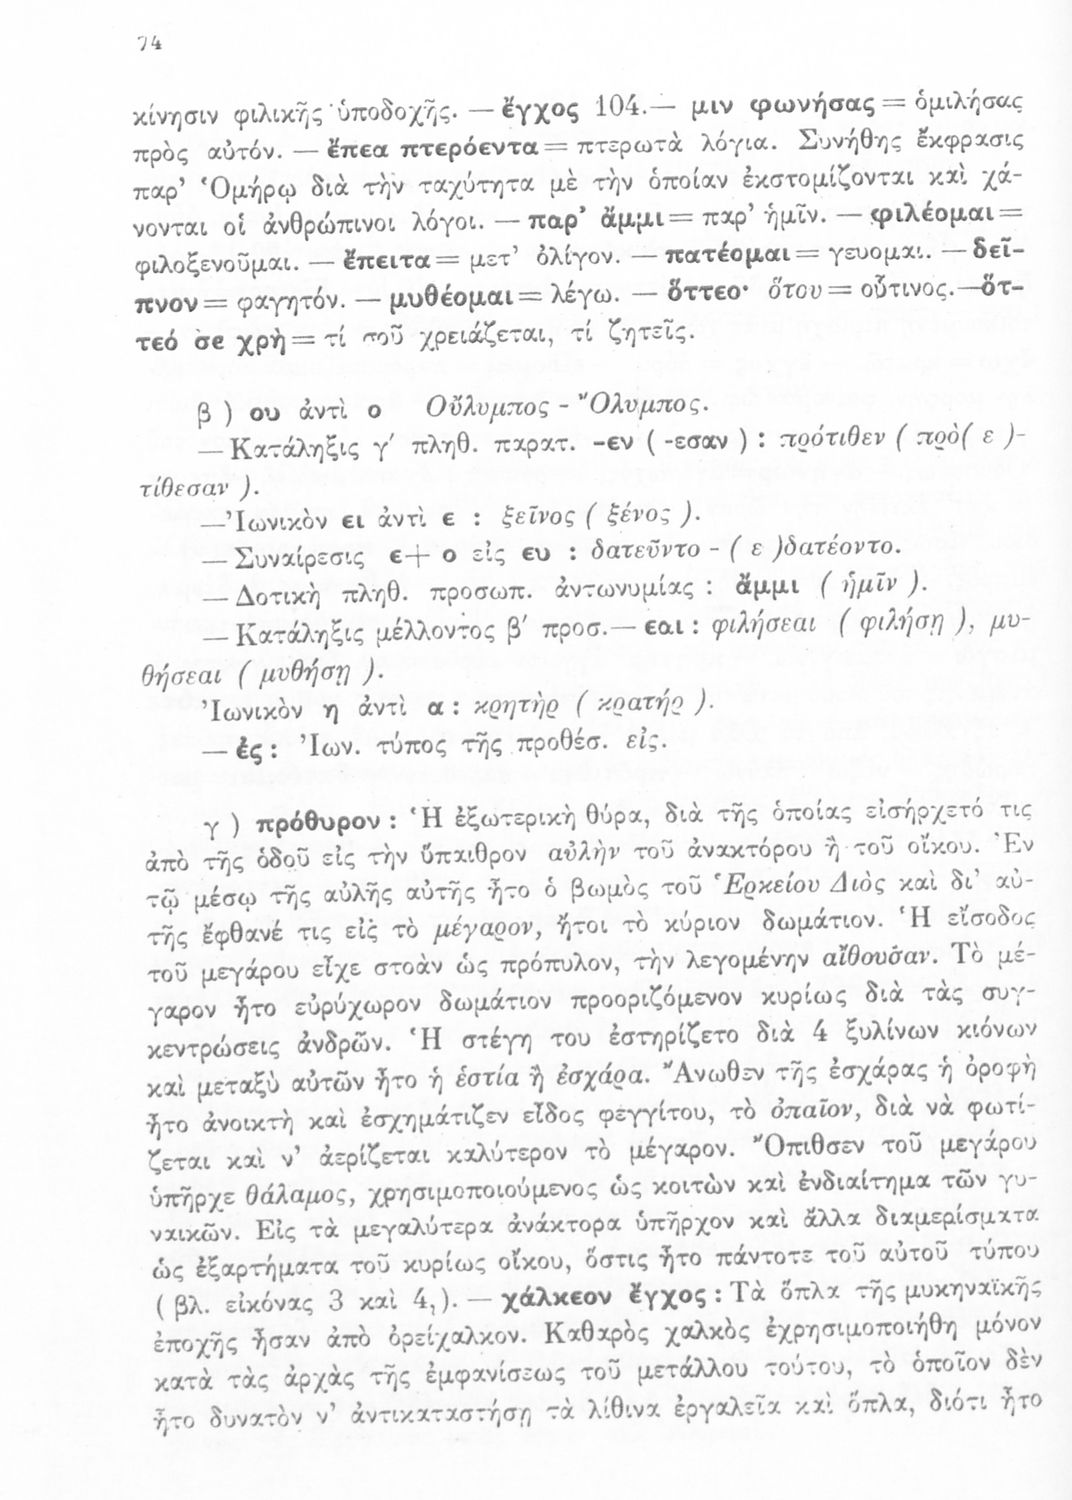 74
κίνησιν φιλικῆς ὑποδοχῆς. — ἔγχος 104.— μιν φωνήσας = ὁμιλήσας
πρὸς αὐτόν. — ἔπεα πτερόεντα = πτερωτὰ λόγια. Συνήθης ἔκφρασις
παρ’ Ὁμήρῳ διὰ τὴν ταχύτητα μὲ τὴν ὁποίαν ἐκστομίζονται καὶ χά-
νονται οἱ ἀνθρώπινοι λόγοι. — παρ’ ἄμμι = παρ’ ἡμῖν. — φιλέομαι =
φιλοξενοῦμαι. — ἔπειτα = μετ’ ὀλίγον. — πατέομαι = γευομαι. — δεῖ-
πνον = φαγητόν. — μυθέομαι = λέγω. — ὅττεο· ὅτου = οὗτινος.—ὅτ-
τεό σε χρὴ = τί σοῦ χρειάζεται, τί ζητεῖς.
β ) ου ἀντὶ ο Οὔλυμπος - Ὄλυμπος.
— Κατάληξις γ′ πληθ. παρατ. -εν ( -εσαν ) : πρότιθεν ( πρὸ( ε )-
τίθεσαν ).
—Ἰωνικὸν ει ἀντὶ ε : ξεῖνος ( ξένος ).
— Συναίρεσις ε + ο εἰς ευ : δατεῦντο - ( ε )δατέοντο.
— Δοτικὴ πληθ. προσωπ. ἀντωνυμίας : ἄμμι ( ἡμῖν ).
— Κατάληξις μέλλοντος β′ προσ.— εαι : φιλήσεαι ( φιλήσῃ ), μυ-
θήσεαι ( μυθήσῃ ).
Ἰωνικὸν η ἀντὶ α : κρητὴρ ( κρατήρ ).
— ἐς : Ἰων. τύπος τῆς προθέσ. εἰς.
γ ) πρόθυρον : Ἡ ἐξωτερικὴ θύρα, διὰ τῆς ὁποίας εἰσήρχετό τις
ἀπὸ τῆς ὁδοῦ εἰς τὴν ὕπαιθρον αὐλὴν τοῦ ἀνακτόρου ἢ τοῦ οἴκου. Ἐν
τῷ μέσῳ τῆς αὐλῆς αὐτῆς ἦτο ὁ βωμὸς τοῦ Ἑρκείου Διὸς καὶ δι’ αὐ-
τῆς ἔφθανέ τις εἰς τὸ μέγαρον, ἤτοι τὸ κύριον δωμάτιον. Ἡ εἴσοδος
τοῦ μεγάρου εἶχε στοὰν ὡς πρόπυλον, τὴν λεγομένην αἴθουσαν. Τὸ μέ-
γαρον ἦτο εὐρύχωρον δωμάτιον προοριζόμενον κυρίως διὰ τὰς συγ-
κεντρώσεις ἀνδρῶν. Ἡ στέγη του ἐστηρίζετο διὰ 4 ξυλίνων κιόνων
καὶ μεταξὺ αὐτῶν ἦτο ἡ ἑστία ἢ ἐσχάρα. Ἄνωθεν τῆς ἐσχάρας ἡ ὀροφὴ
ἦτο ἀνοικτὴ καὶ ἐσχημάτιζεν εἶδος φεγγίτου, τὸ ὀπαῖον, διὰ νὰ φωτί-
ζεται καὶ ν’ ἀερίζεται καλύτερον τὸ μέγαρον. Ὄπιθσεν τοῦ μεγάρου
ὑπῆρχε θάλαμος, χρησιμοποιούμενος ὡς κοιτὼν καὶ ἐνδιαίτημα τῶν γυ-
ναικῶν. Εἰς τὰ μεγαλύτερα ἀνάκτορα ὑπῆρχον καὶ ἄλλα διαμερίσματα
ὡς ἐξαρτήματα τοῦ κυρίως οἴκου, ὅστις ἦτο πάντοτε τοῦ αὐτοῦ τύπου
( βλ. εἰκόνας 3 καὶ 4,). — χάλκεον ἔγχος : Τὰ ὅπλα τῆς μυκηναϊκῆς
ἐποχῆς ἦσαν ἀπὸ ὀρείχαλκον. Καθαρὸς χαλκὸς ἐχρησιμοποιήθη μόνον
κατὰ τὰς ἀρχὰς τῆς ἐμφανίσεως τοῦ μετάλλου τούτου, τὸ ὁποῖον δὲν
ἦτο δυνατὸν ν’ ἀντικαταστήσῃ τὰ λίθινα ἐργαλεῖα καὶ ὅπλα, διότι ἦτο